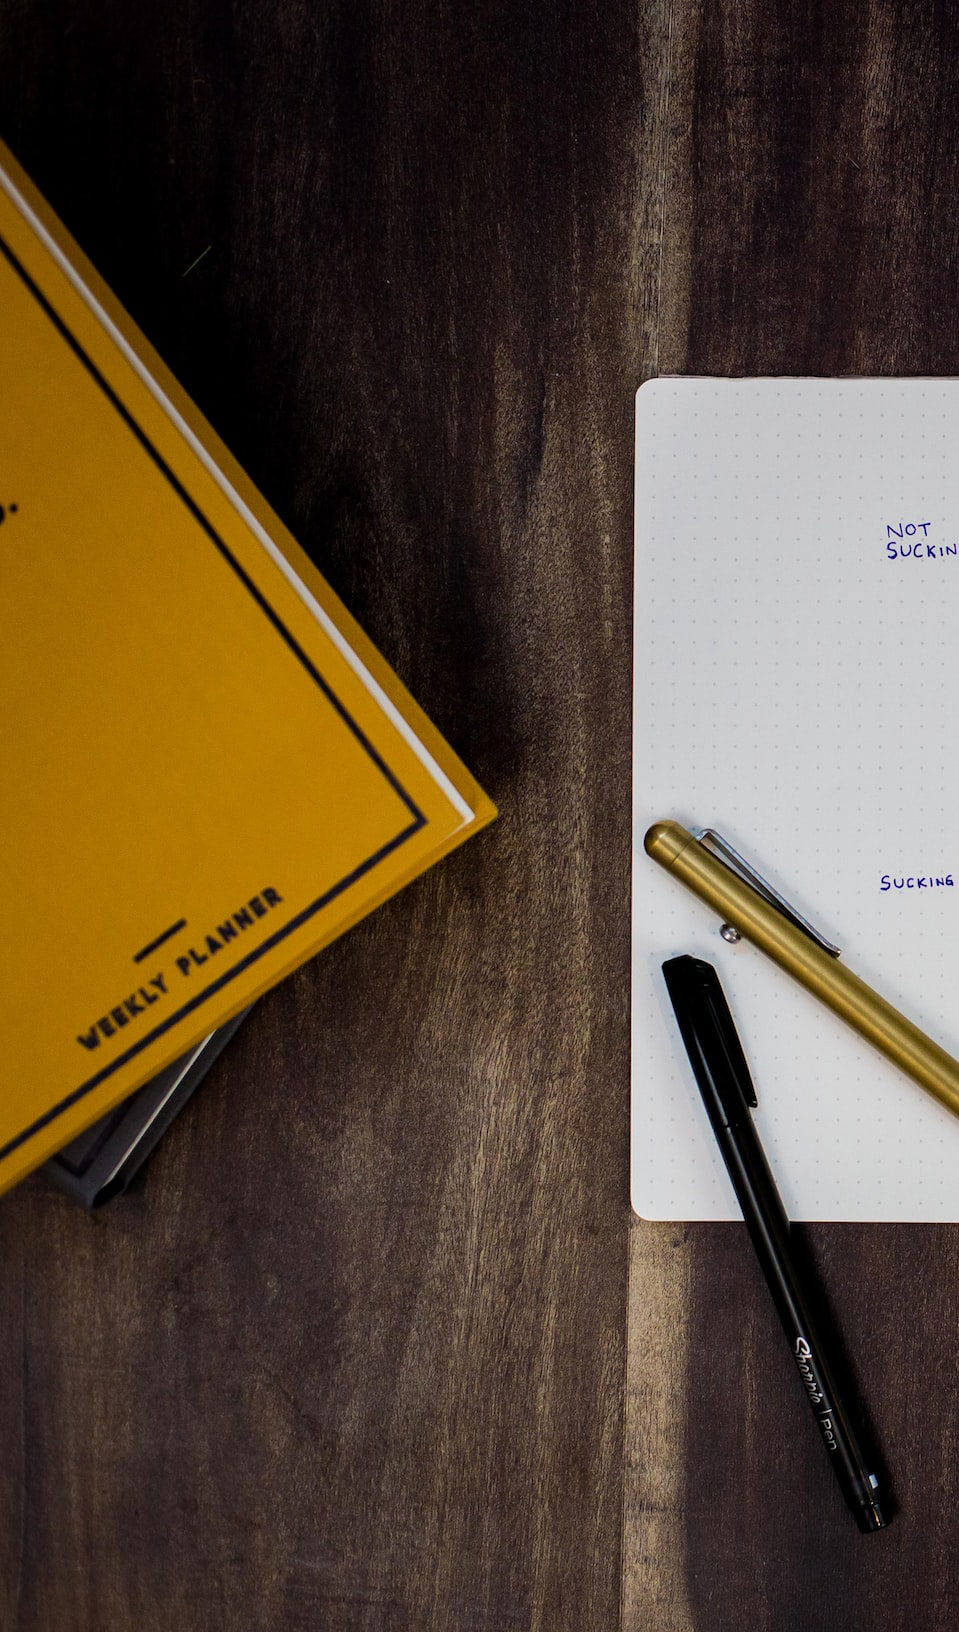 WEEKLY PLANNER
NOT
SUCKIN
SUCKING
Sharpie | Pen